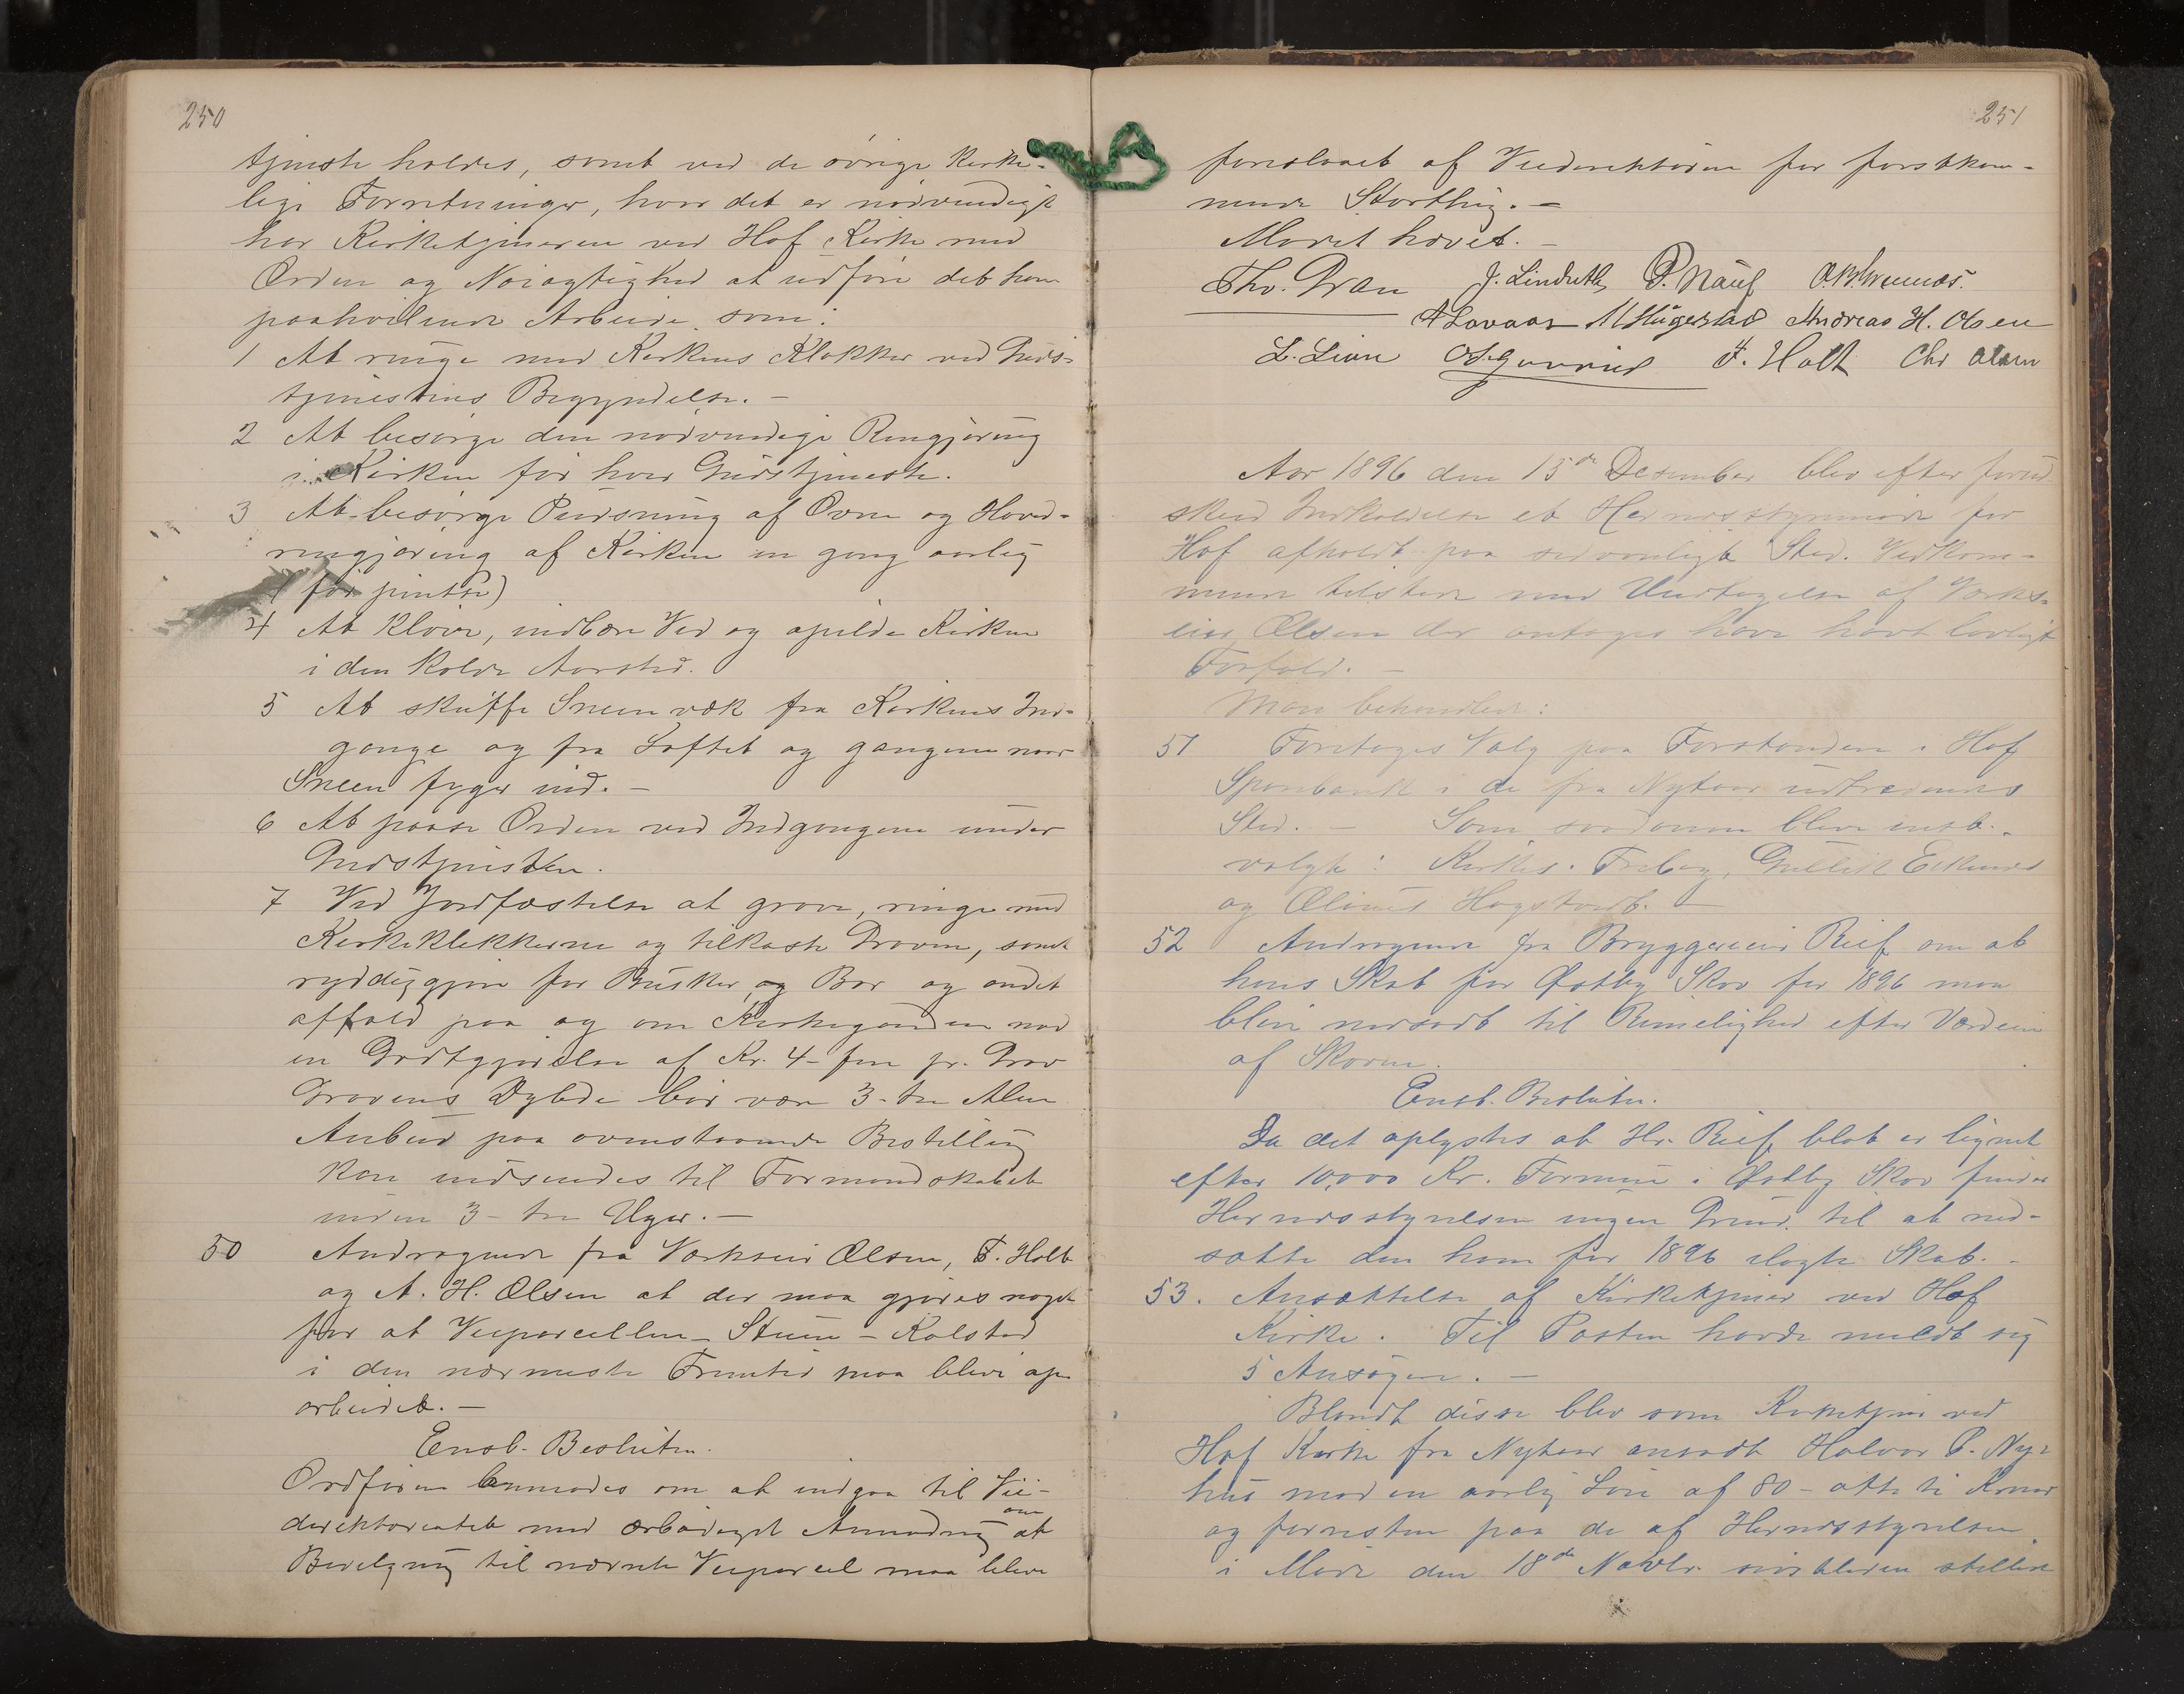 250
tjeneste holdes, samt ved de øvrige kirke-
lige Forretninger, hvor det er nødvendigt
har Kirketjeneren ved Hof Kirke med
Orden og Nøiagtighed at udføre det ham
paahvilende Arbeide som:
1 At ringe med Kirkens Klokker ved Guds-
tjenestens Begyndelse. -
2 At besørge den nødvendige Rengjøring
i Kirken før hver Gudstjeneste.
3 At besørge Pudsning af Ovne og Hoved-
rengjøring af Kirken en gang aarlig
(før pintse)
4 At kløve, indbære Ved og opilde Kirken
i den kolde Aarstid.
5 At skuffe Sneen væk fra Kirkens Ind-
gange og fra Loftet og gangene naar
Sneen fyger ind. -
6 At paase Orden ved Indgangene under
Gudstjenesten.
7 Ved Jordfæstelse at grave, ringe med
Kirkeklokkerne og tilkaste Graven, samt
ryddiggjøre for Busker og Bar og andet
affald paa og om Kirkegaarden mod
en Godtgjørelse af Kr. 4- fire pr. Grav
Gravens Dybde bør være 3- tre Alen
Anbud paa ovenstaaende Bestilling
kan indsendes til Formandskabet
inden 3- tre Uger. -
50 Andragende fra Værkseier Olsen, F. Holt
og A. H. Olsen at der maa gjøres noget
for at Veiparcellen - Steen - Kolstad
i den nærmeste Fremtid maa blive op-
arbeidet. -
Enst. Beslutn.
Ordføren anmodes om at indgaa til Vei-
direktoratet med ærbødigst Anmodning om at
Bevilgning til nævnte Veiparcel maa blive
251
foreslaaet af Veidirektøren for førstkom-
mende Storthing. -
Mødet hævet. -
Tho. Gran J. Lindseth P. Nauf
A Lovaas M Hugerstad Andreas H. Olsen
L. Lien F. Holt Chr Olsen
Aar 1896 den 15de Desember blev efter forud
skeed Indkaldelse et Herredsstyremøde for
Hof afholdt paa sedvanligt Sted. Vedkom-
mende tilstede med Undtagelse af Værks-
eier Olsen der antages have havt lovligt
Forfald. -
Man behandlede:
51 Foretages Valg paa Forstandere i Hof
Sparebank i de fra Nytaar udtrædendes
Sted. - Som saadanne blev enst.
valgte: Kirkes. Freberg, Gullik Eskerud
og Olaus Hagstvedt. -
52 Andragende fra Bryggerieier Rief om at
hans Skat for Østby Skov for 1896 maa
blive nedsadt til Rimelighed efter Værdien
af Skoven.
Enst. Beslutn.
Da det oplystes at Hr. Rief blot er lignet
efter 10,000 Kr. Formue i Østby Skov finder
Herredsstyrelsen ingen Grund til at ned-
sætte den ham for 1896 ilagte Skat. -
53. Ansættelse af Kirketjener ved Hof
Kirke. Til Posten havde meldt sig
5 Ansøgere. -
Blandt disse blev som Kirketjener ved
Hof Kirke fra Nytaar ansadt Halvor P. Ny-
hus mod en aarlig Løn af 80 - otte ti Kroner
og forresten paa de af Herredsstyrelsen
i Møde den 18de Novbr. sidstleden stillede